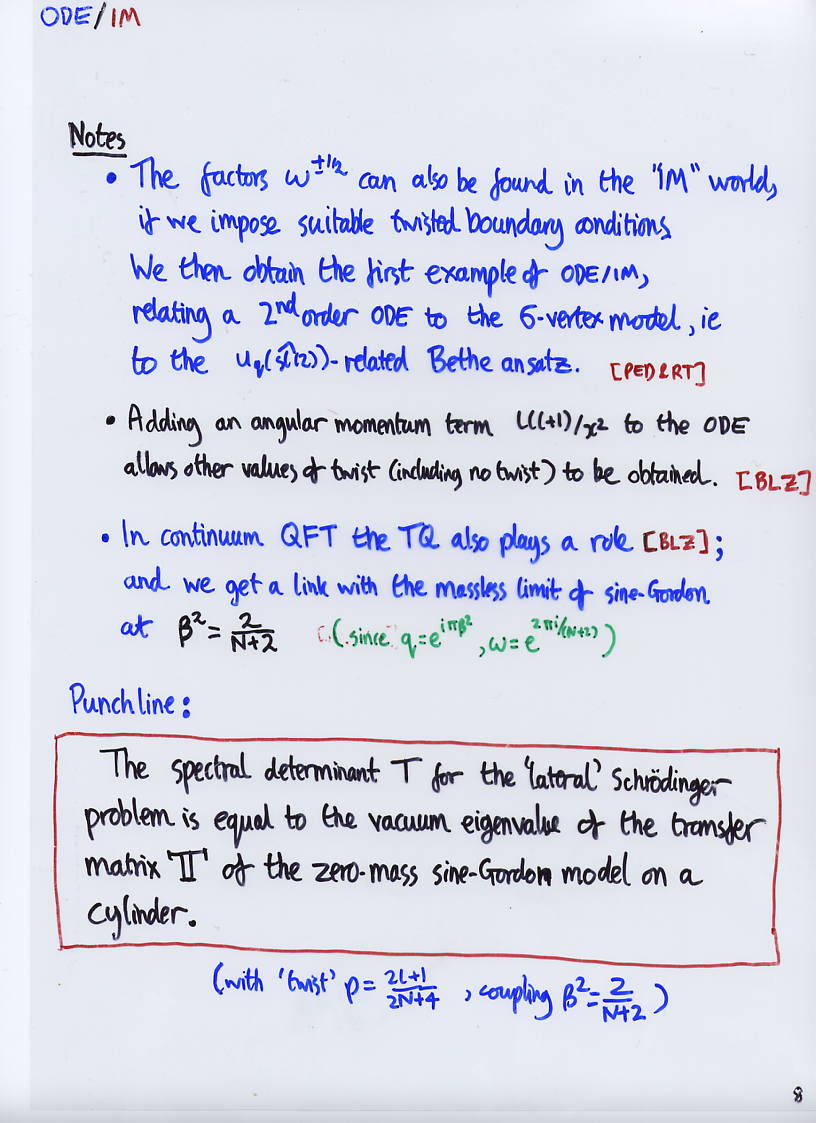 ODE/IM
Notes
• The factors ω^{±1/2} can also be found in the "IM" world,
if we impose suitable twisted boundary conditions.
We then obtain the first example of ODE/IM,
relating a 2nd order ODE to the 6-vertex model, ie
to the U_q(ŝl(2))-related Bethe ansatz. [PED&RT]
• Adding an angular momentum term l(l+1)/x² to the ODE
allows other values of twist (including no twist) to be obtained. [BLZ]
• In continuum QFT the TQ also plays a role [BLZ];
and we get a link with the massless limit of sine-Gordon
at β² = 2/(N+2) (since q=e^{iπβ²}, ω=e^{2πi/(N+2)})
Punchline:
The spectral determinant T for the 'lateral' Schrödinger
problem is equal to the vacuum eigenvalue of the transfer
matrix '𝕋' of the zero-mass sine-Gordon model on a
cylinder.
(with 'twist' p = (2l+1)/(2N+4), coupling β² = 2/(N+2))
8